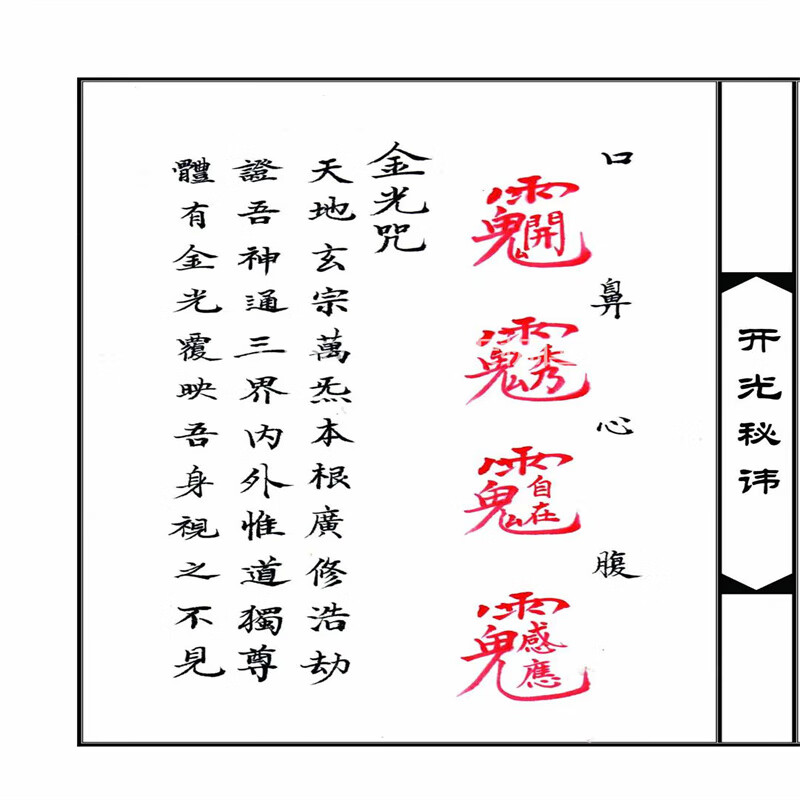 开光秘讳
口
鼻
心
腹
開
秀
自在
感應
金光咒
天地玄宗萬炁本根廣修浩劫
證吾神通三界内外惟道獨尊
體有金光覆映吾身視之不見